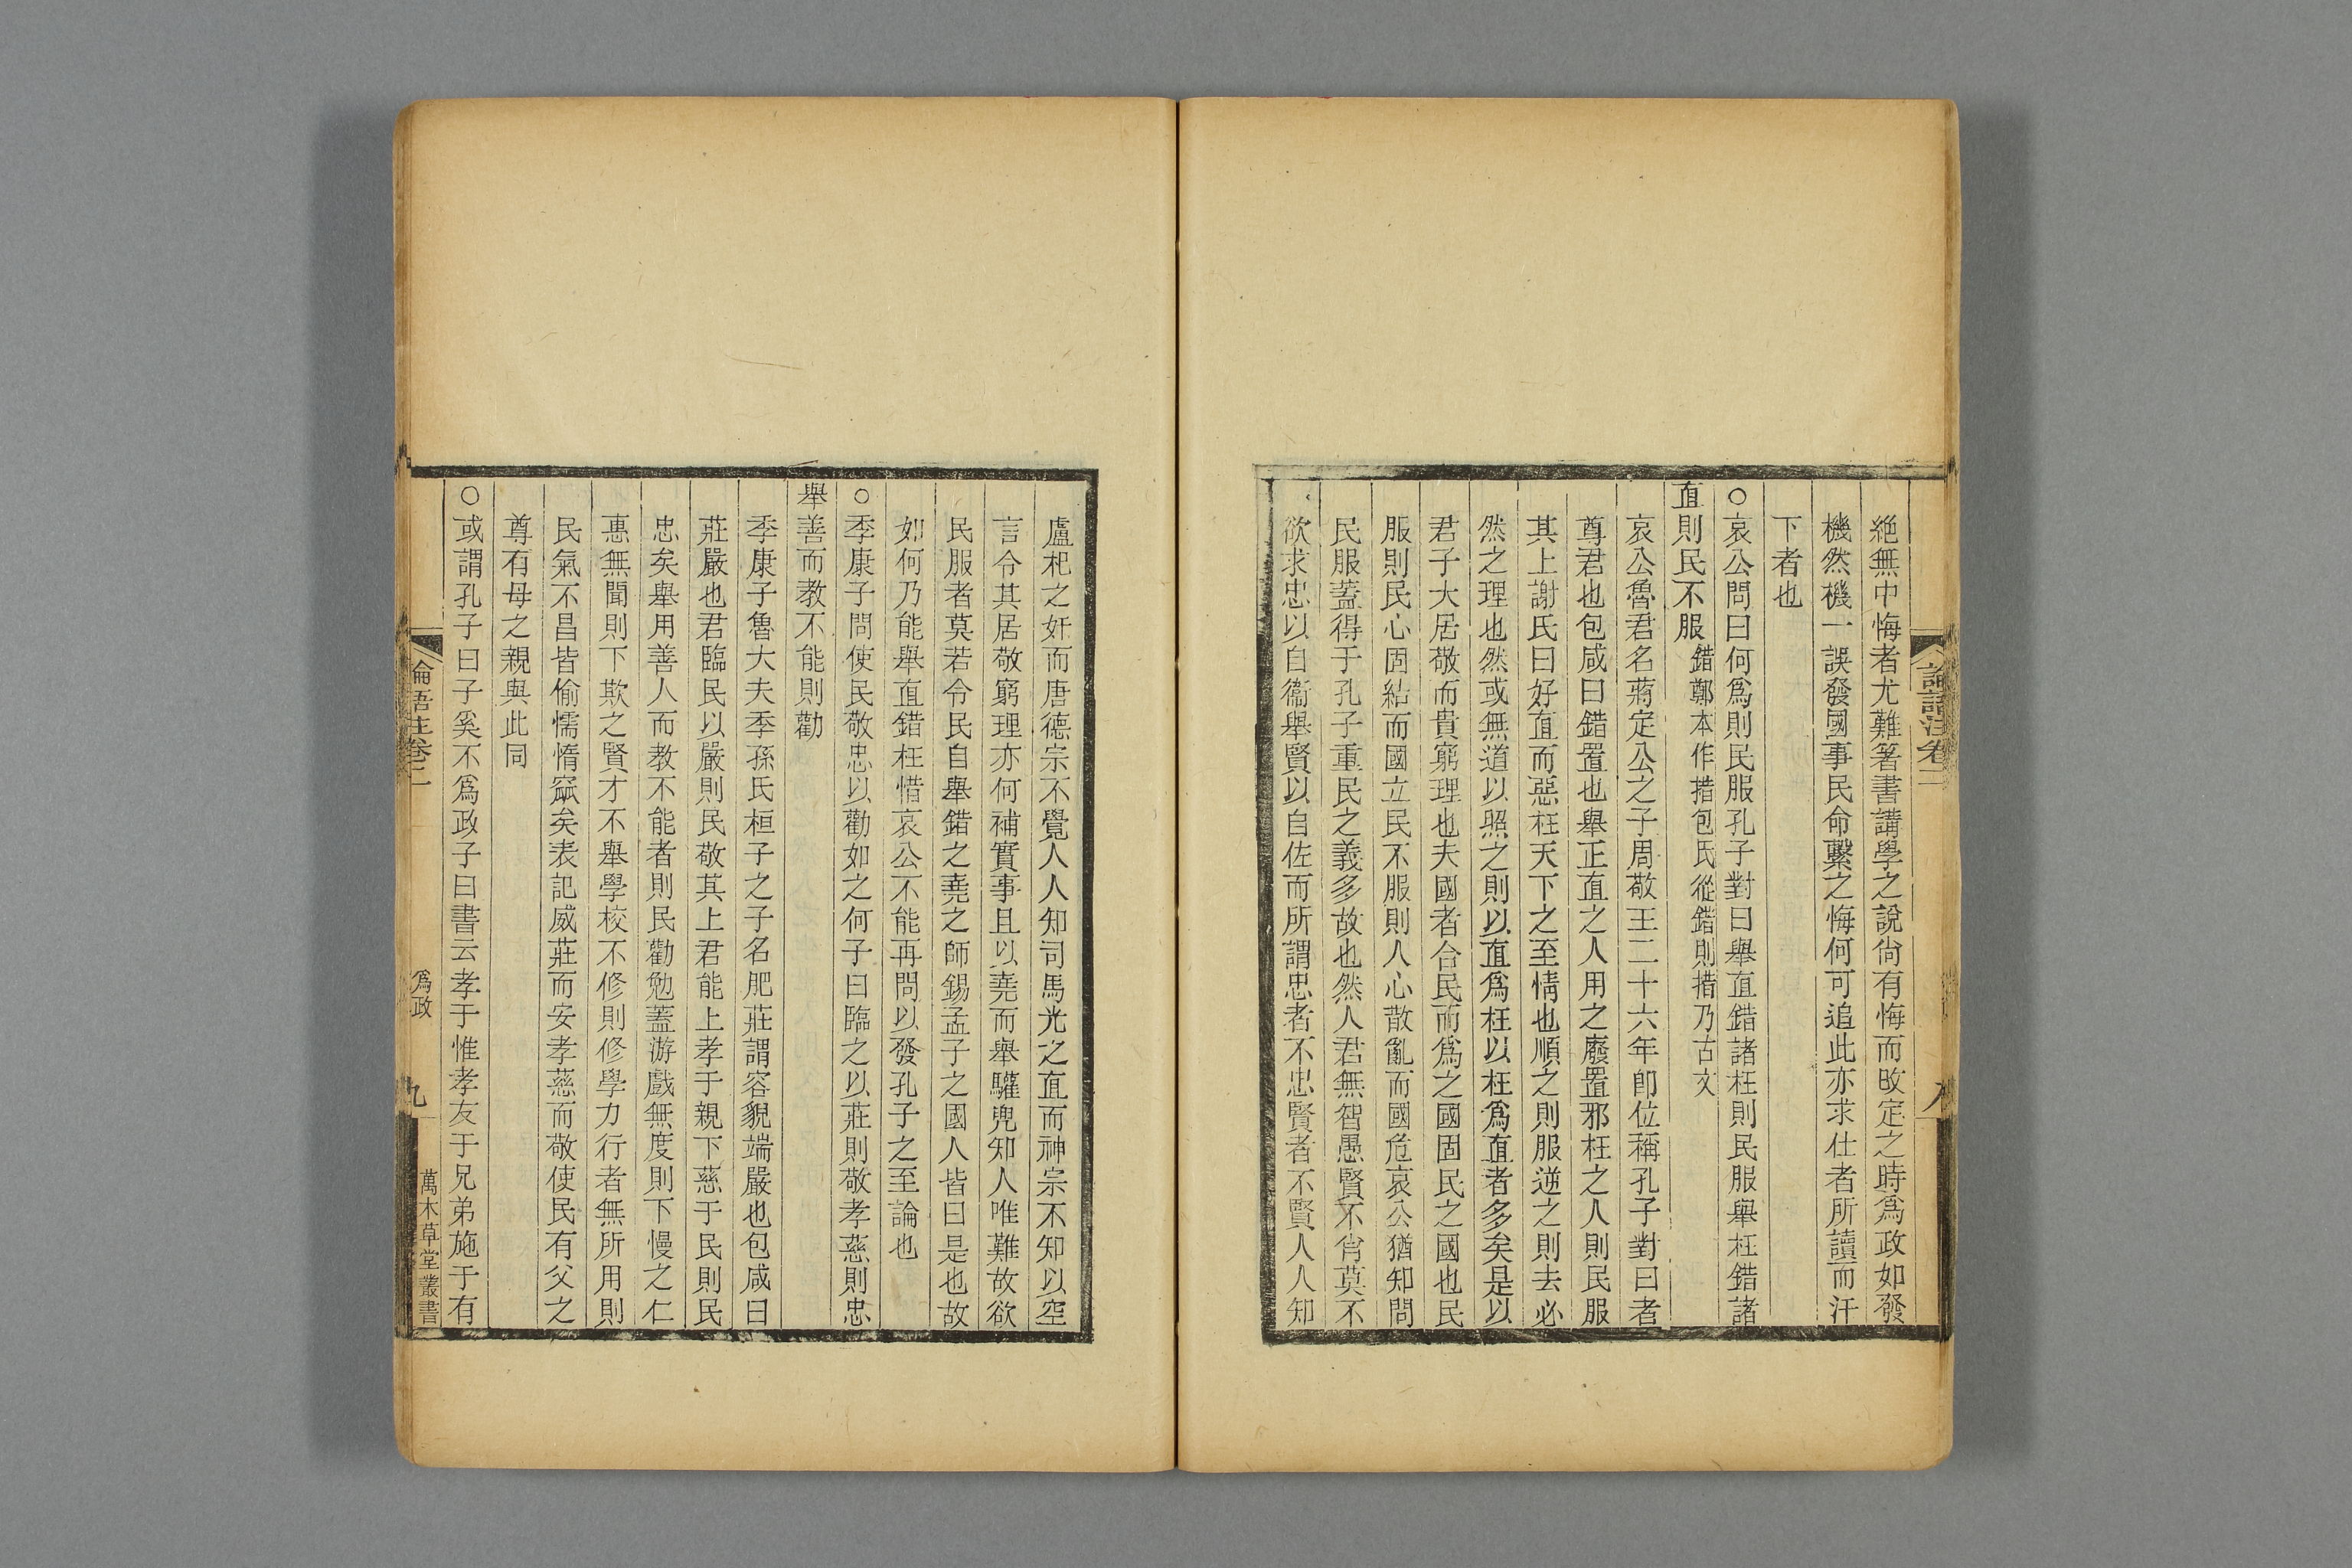 論語注卷二
八
絕無中悔者尤難箸書講學之說尙有悔而改定之時爲政如發
機然機一誤發國事民命繫之悔何可追此亦求仕者所讀而汗
下者也
○哀公問曰何爲則民服孔子對曰舉直錯諸枉則民服舉枉錯諸
直則民不服錯鄭本作措包氏從錯則措乃古文
哀公魯君名蔣定公之子周敬王二十六年卽位稱孔子對曰者
尊君也包咸曰錯置也舉正直之人用之廢置邪枉之人則民服
其上謝氏曰好直而惡枉天下之至情也順之則服逆之則去必
然之理也然或無道以照之則以直爲枉以枉爲直者多矣是以
君子大居敬而貴窮理也夫國者合民而爲之國固民之國也民
服則民心固結而國立民不服則人心散亂而國危哀公猶知問
民服蓋得于孔子重民之義多故也然人君無智愚賢不肖莫不
欲求忠以自衞舉賢以自佐而所謂忠者不忠賢者不賢人人知
盧杞之奸而唐德宗不覺人人知司馬光之直而神宗不知以空
言令其居敬窮理亦何補實事且以堯而舉驩兜知人唯難故欲
民服者莫若令民自舉錯之堯之師錫孟子之國人皆曰是也故
如何乃能舉直錯枉惜哀公不能再問以發孔子之至論也
○季康子問使民敬忠以勸如之何子曰臨之以莊則敬孝慈則忠
舉善而教不能則勸
季康子魯大夫季孫氏桓子之子名肥莊謂容貌端嚴也包咸曰
莊嚴也君臨民以嚴則民敬其上君能上孝于親下慈于民則民
忠矣舉用善人而教不能者則民勸勉蓋游戲無度則下慢之仁
惠無聞則下欺之賢才不舉學校不修則修學力行者無所用則
民氣不昌皆偷懦惰窳矣表記威莊而安孝慈而敬使民有父之
尊有母之親與此同
○或謂孔子曰子奚不爲政子曰書云孝于惟孝友于兄弟施于有
論語注卷二
爲政
九
萬木草堂叢書